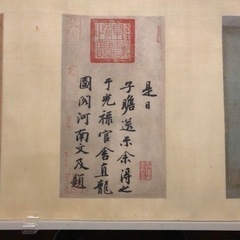 是日
子瞻遊示余得之
于光禄官舍直龍
圖閣河南文及題